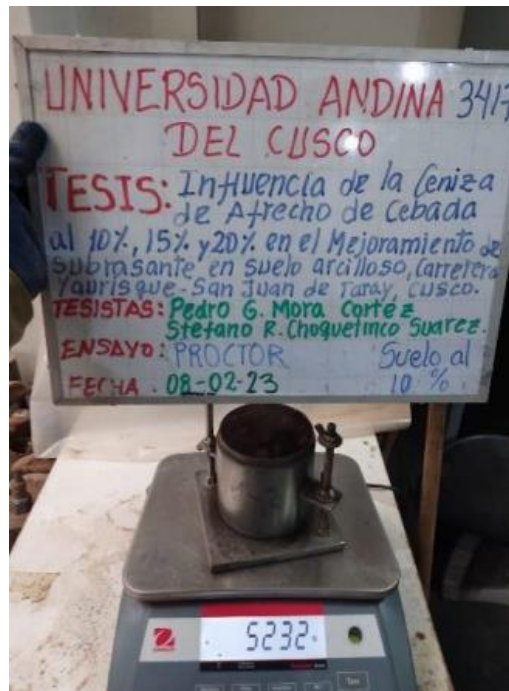 UNIVERSIDAD ANDINA 3417
DEL CUSCO
TESIS: Influencia de la Ceniza
de Afrecho de Cebada
al 10%, 15% y 20% en el Mejoramiento de
Subrasante en suelo arcilloso, Carretera
Yaurisque-San Juan de Taray, Cusco.
TESISTAS: Pedro G. Mora Cortéz
Stefano R. Choquetinco Suarez.
ENSAYO: PROCTOR Suelo al
FECHA: 08-02-23 10 %
5232